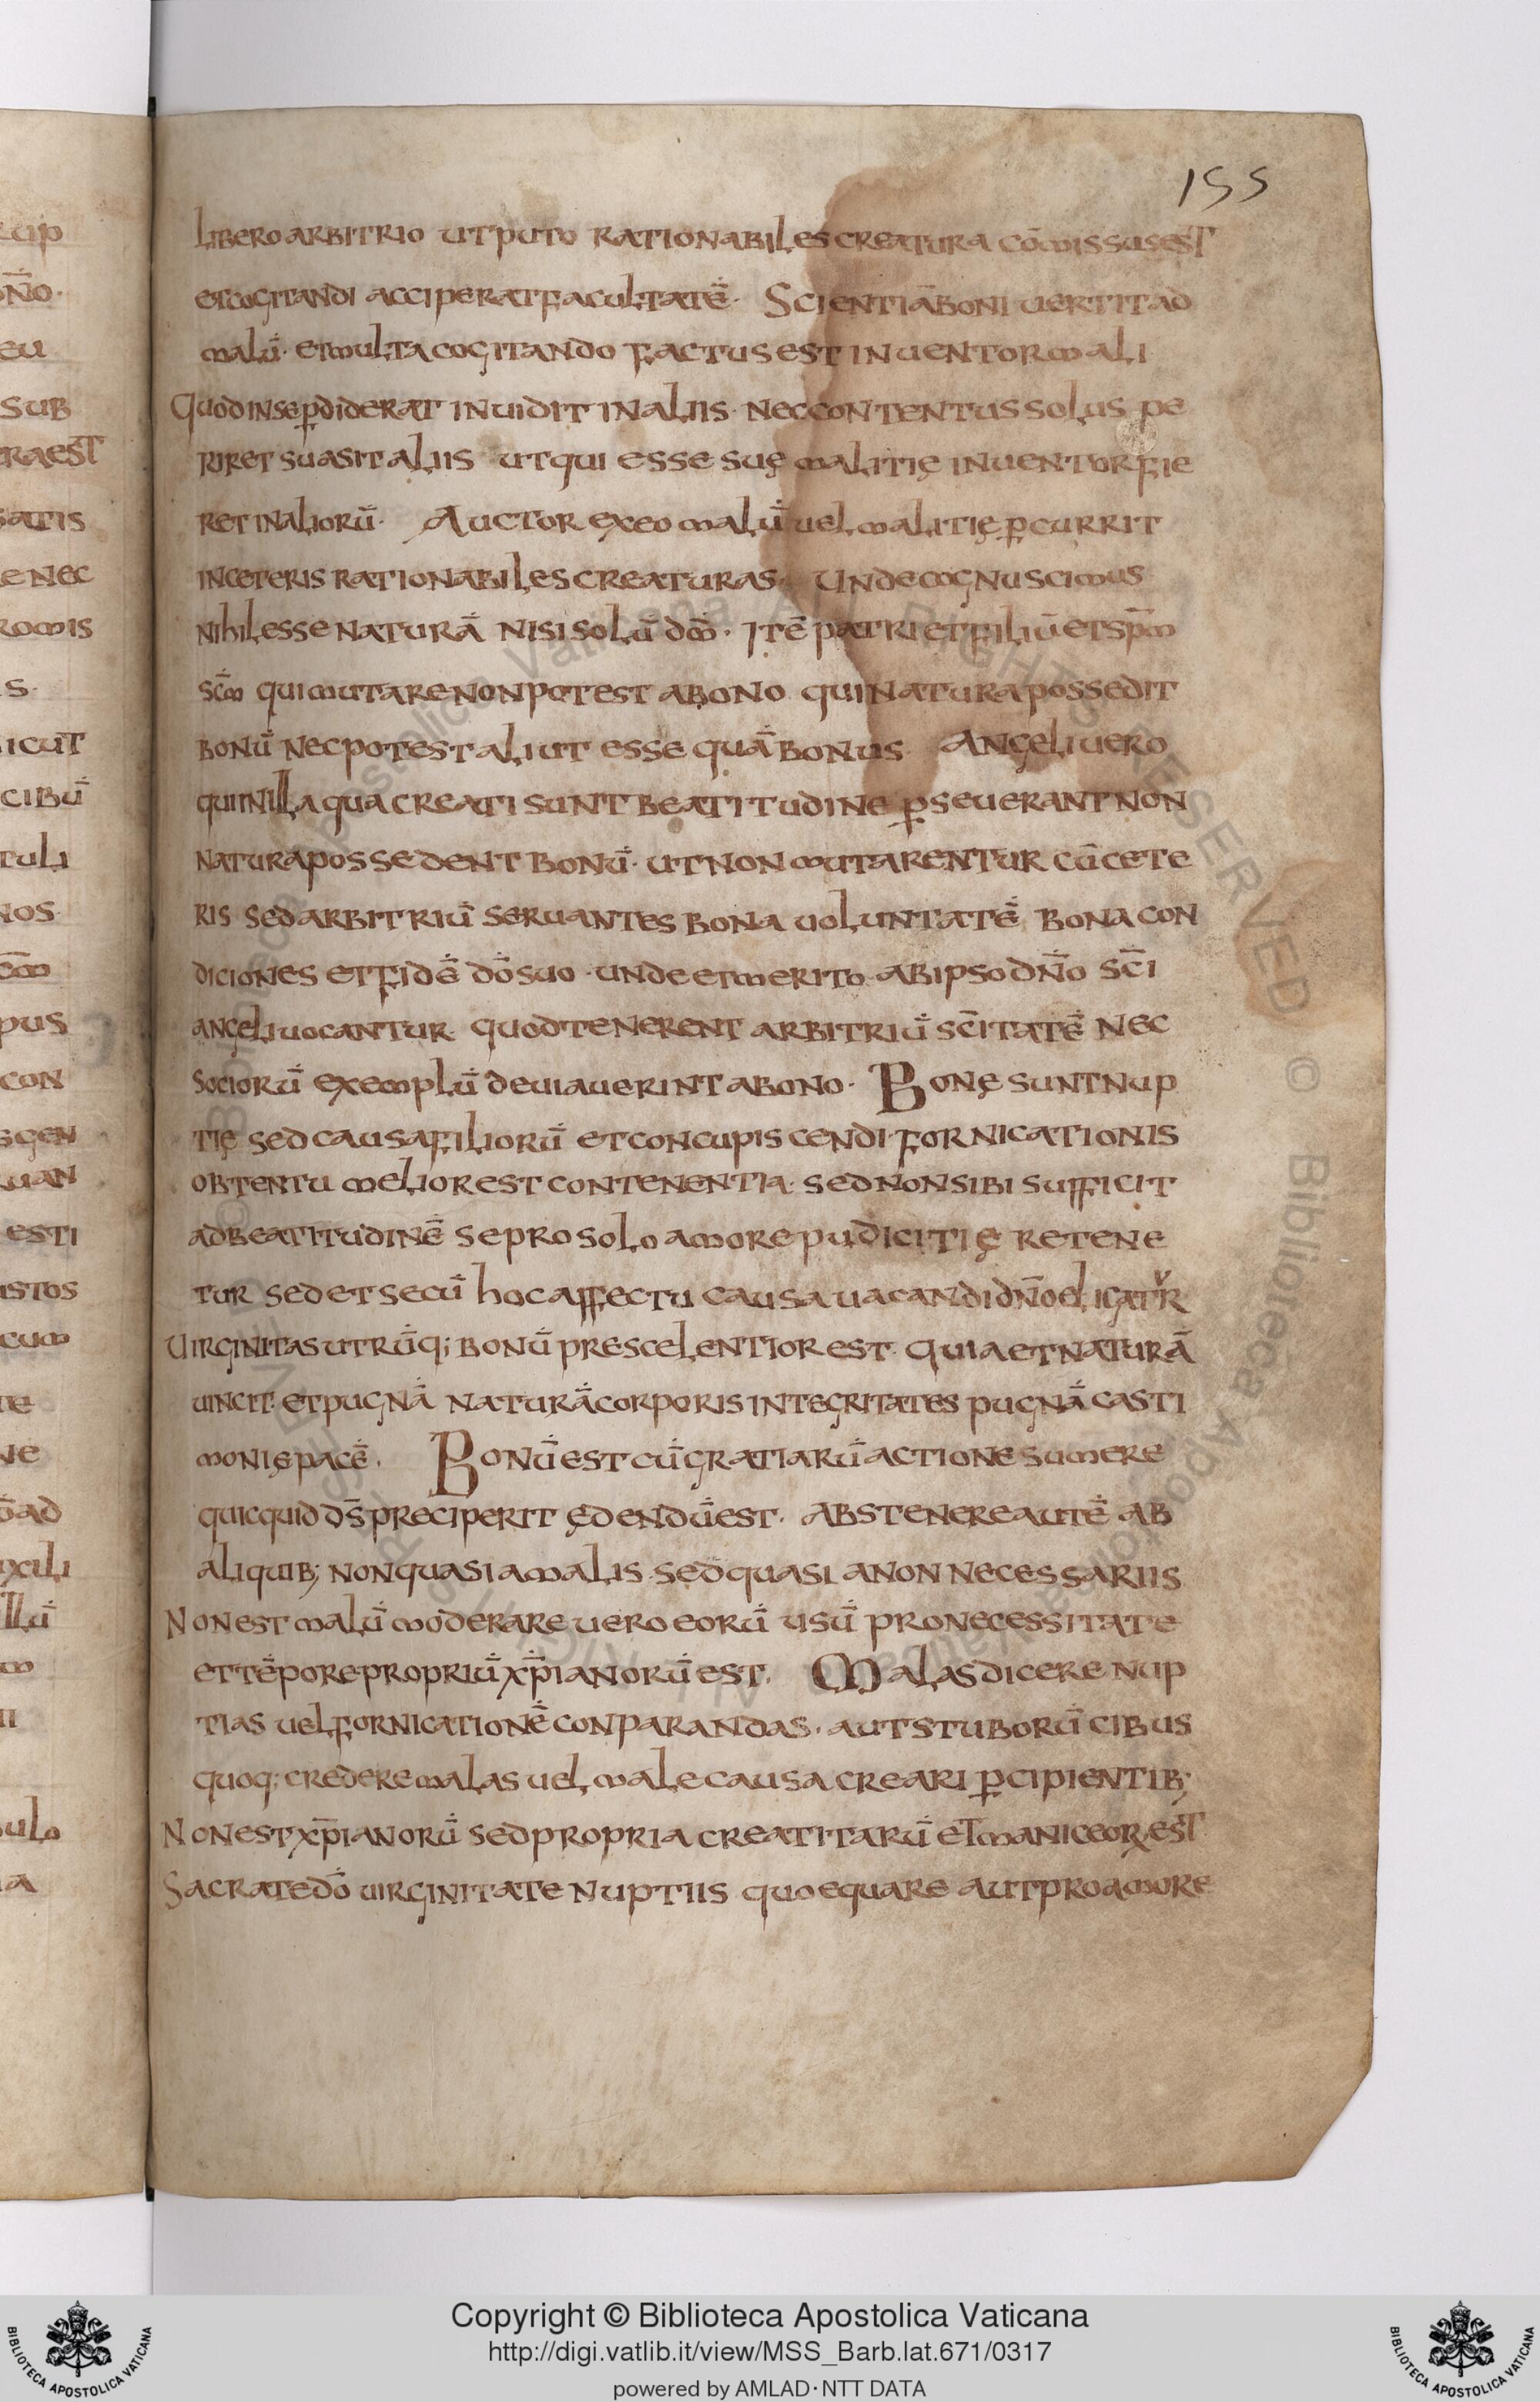 155
libero arbitrio ut puto rationabiles creatura com̄issus est
et cogitandi acciperat facultatē. Scientiā boni uertit ad
malū. et multa cogitando factus est inuentor mali
Quod in se ꝑdiderat inuidit in aliis. nec contentus solus pe
riret suasit aliis ut qui esse suę malitię inuentor fie
ret in aliorū. Auctor ex eo malū uel malitię ꝑcurrit
in ceteris rationabiles creaturas. Unde cognuscimus
nihil esse naturā nisi solū dm̄. Itē patri et filiū et sp̄m
sc̄m qui mutare non potest a bono qui natura possedit
bonū nec potest aliut esse quā bonus. Angeli uero
qui in illa qua creati sunt beatitudine ꝑseuerant non
natura possedent bonū. ut non mutarentur cū cete
ris sed arbitriū seruantes bona uoluntatē bona con
diciones et fidē dō suo. unde et merito ab ipso dn̄o sc̄i
angeli uocantur. quod tenerent arbitriū sc̄itatē nec
sociorū exemplū deuiauerint a bono. Bonę sunt nup
tię sed causa filiorū et concupiscendi fornicationis
obtentu melior est contenentia. sed non sibi sufficit
ad beatitudinē se pro solo amore pudicitię retene
tur sed et secū hoc affectu causa uacandi dn̄o eligatur
Uirginitas utrūq; bonū prescelentior est quia et naturā
uincit. et pugnā naturā corporis integritates pugnā casti
monię pacē. Bonū est cū gratiarū actione sumere
quicquid ds̄ preciperit ędendū est. abstenere autē ab
aliquib; non quasi a malis. sed quasi a non necessariis
Non est malū moderare uero eorū usū pro necessitate
et tēpore propriū xp̄ianorū est. Malas dicere nup
tias uel fornicationē conparandas. aut stuborū cibus
quoq; credere malas uel male causa creari ꝑcipientib;
Non est xp̄ianorū sed propria creatitarū et maniceoꝝ est
Sacrate dō uirginitate nuptiis quo equare aut pro amore
Copyright © Biblioteca Apostolica Vaticana
http://digi.vatlib.it/view/MSS_Barb.lat.671/0317
powered by AMLAD·NTT DATA
BIBLIOTECA APOSTOLICA VATICANA
BIBLIOTECA APOSTOLICA VATICANA